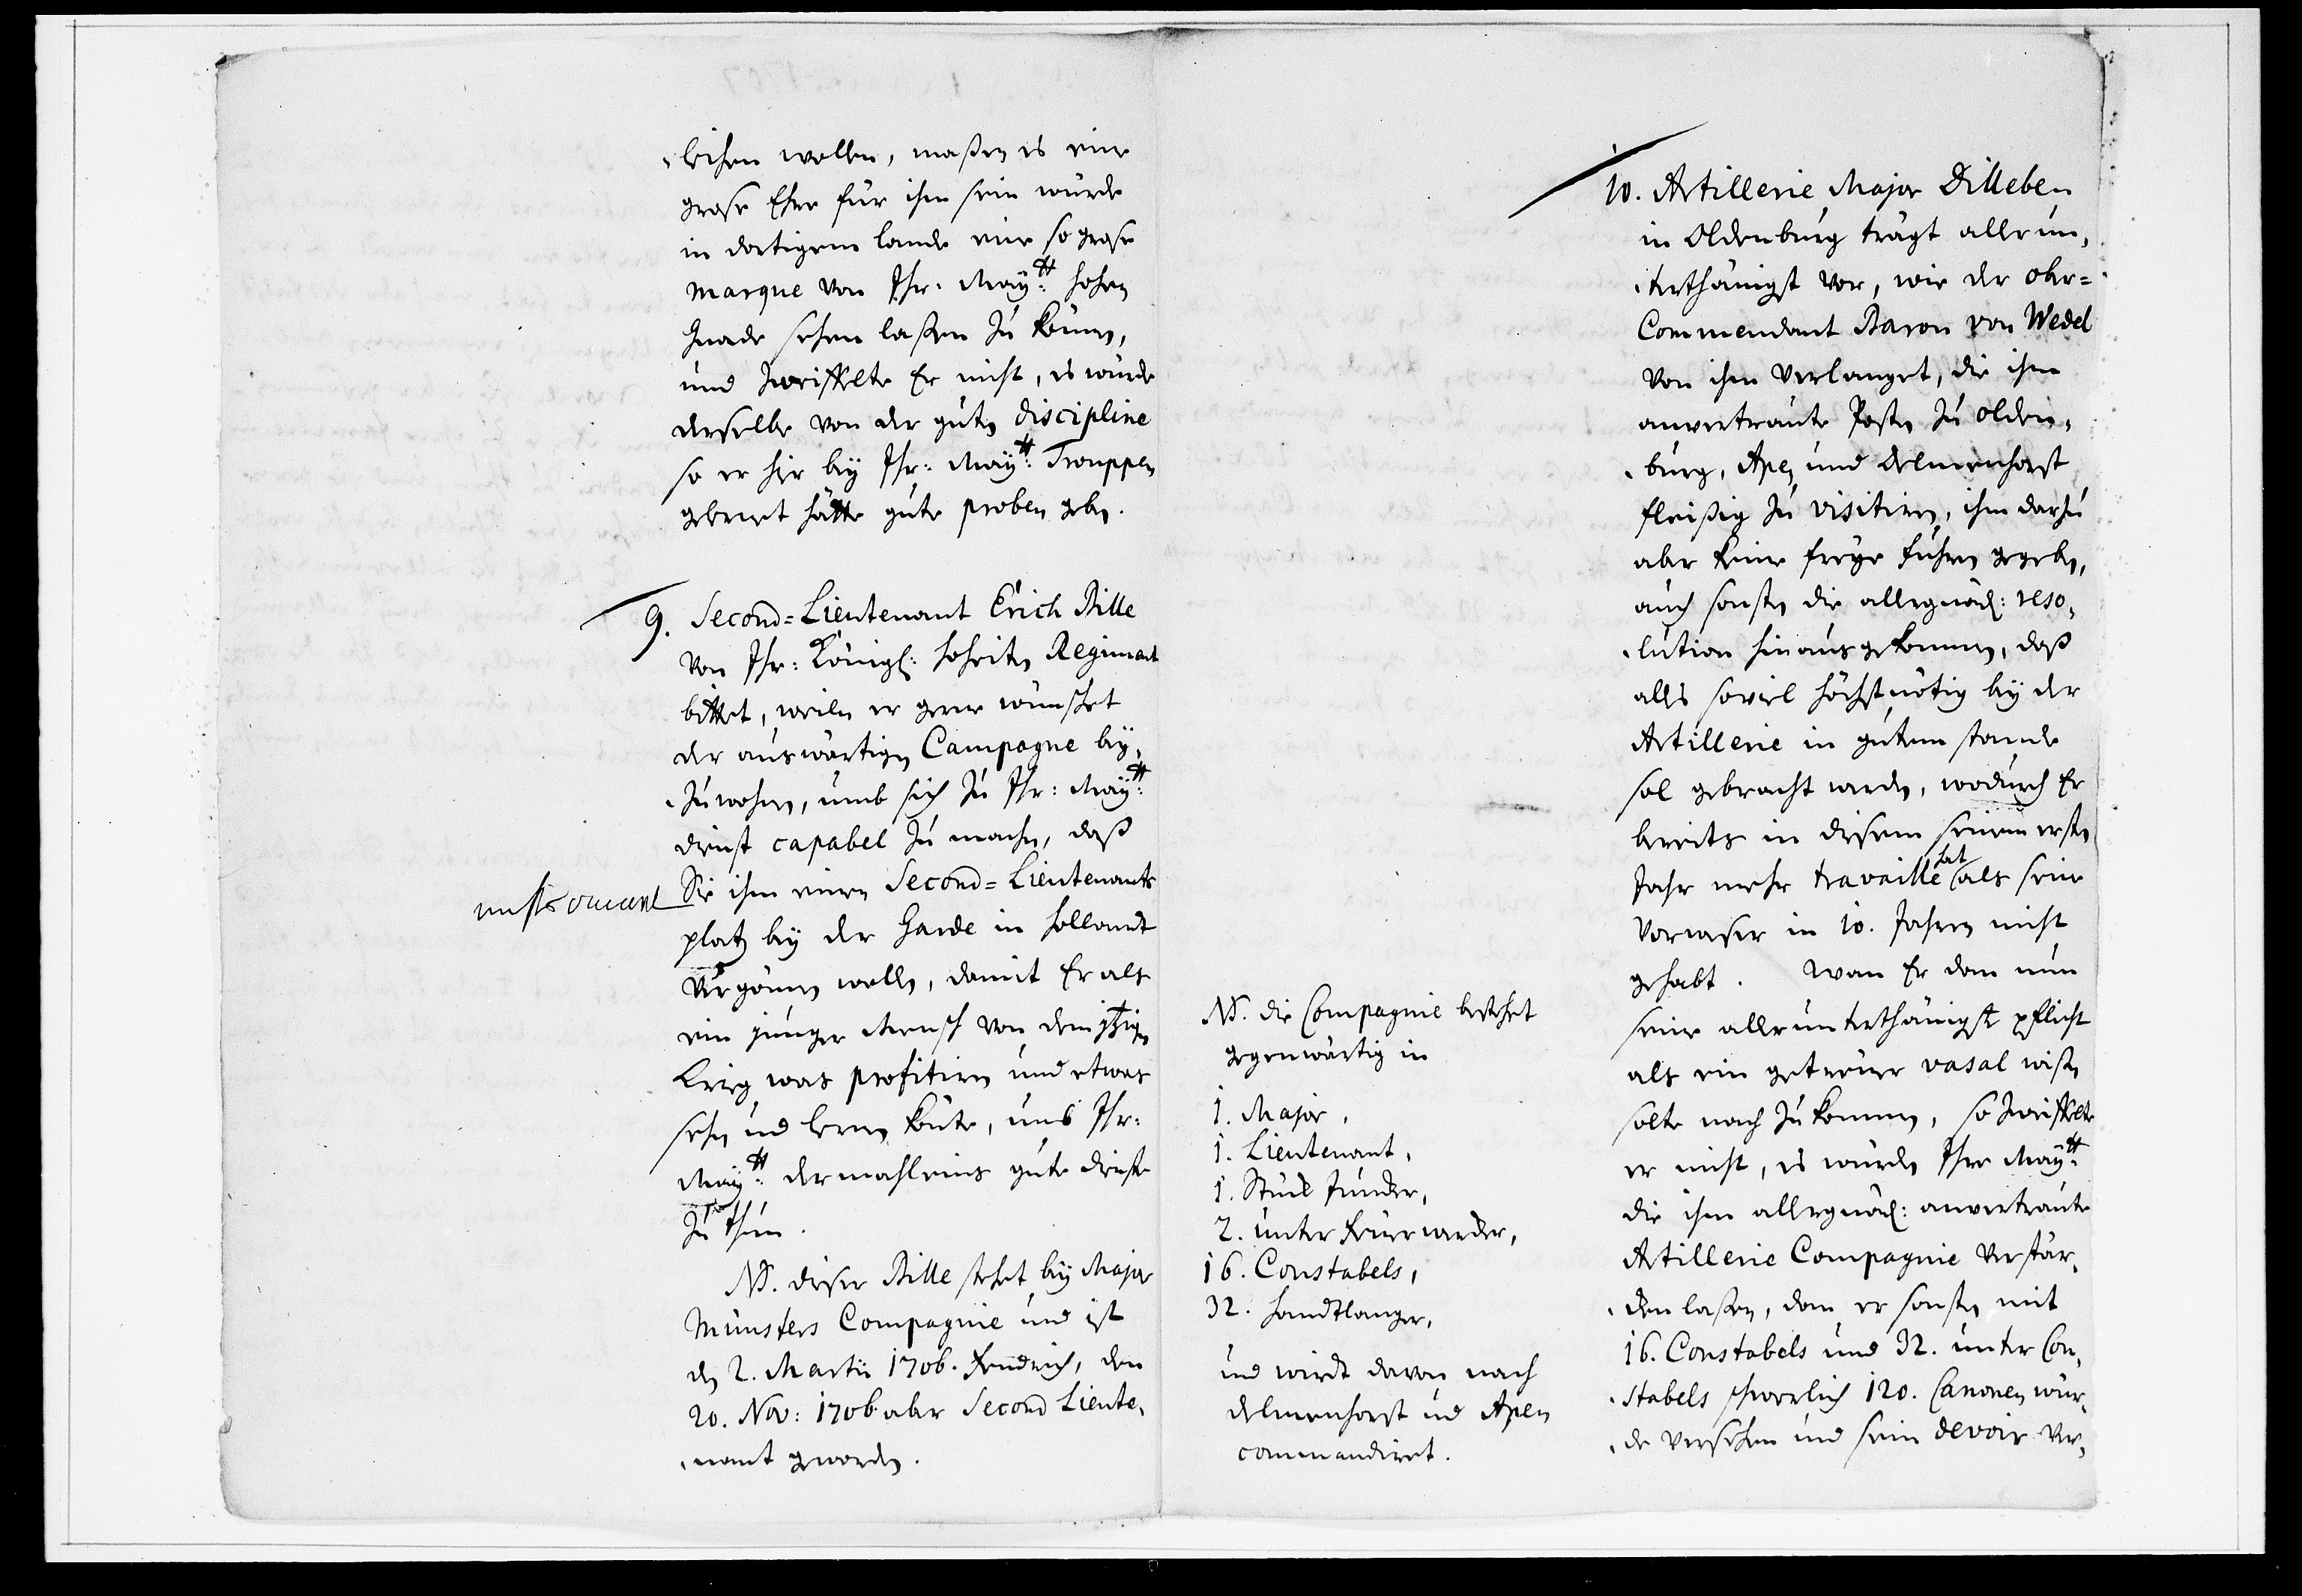 leihen wollen, maßen es eine
große Ehre für ihm sein würde
in dortigem lande eine so große
marque von Ihr: Maytt: hohen
Gnade sehen laßen zu können,
und zweiffelte Er nicht, es würde
derselbe von der guten discipline
so er hir bey Ihr: Maytt: Trouppen
gelernet hätte gute proben geben.
9. Second-Lieutenant Erich Bille
von Ihr: Königl: Hoheiten Regiment
bittet, weilen er gerne wünschet
der auswärtigen Campagne bey,
zuwohnen, umb sich zu Ihr: Maytt:
dienst capabel zu machen, daß
Sie ihm einen Second-Lieutenants
platz bey der Garde in Hollandt
vergönnen wollen, damit Er als
ein junger Mensch von dem itzigen
Krieg was profitiren und etwas
sehen und lernen könte, umb Ihr:
Maytt: dermahleins gute dienste
zu thun.
NB. dieser Bille stehet bey Major
Münsters Compagnie und ist
den 2. Martii 1706. Fendrich, den
20. Nov: 1706. aber Second Lieute,
nant geworden.
NB. die Compagnie bestehet
gegenwärtig in
1. Major,
1. Lieutenant,
1. Stück Juncker,
2. unter Feuerwercker,
16. Constabels,
32. Handtlanger,
und wirdt davon nach
Delmenhorst und Apen
commandiret.
10. Artillerie Major Dilleben
in Oldenburg trägt allerun,
terthänigst vor, wie der ober=
Commendant Baron von Wedel
von ihm verlanget, die ihm
anvertraute Posten zu Olden,
burg, Apen und Delmenhorst
fleißig zu visitiren, ihm darzu
aber keine freye Fuhren gegeben,
auch sonsten die allergnäd: reso,
lution hinausgekommen, daß
alles soviel höchstnötig bey der
Artillerie in gutem stande
sol gebracht werden, wodurch Er
bereits in diesem seinem ersten
Jahr mehr travaille hat als seine
Vorweser in 10. Jahren nicht
gehabt. Wan Er dan nun
seine allerunterthänigste pflicht
als ein getreuer vasal wißen
solte nach zu kommen, so zweiffelte
er nicht, es würden Ihre Maytt:
die ihm allergnäd: anvertraute
Artillerie Compagnie verstär,
cken laßen, dan er sonsten mit
16. Constabels und 32. unter Con,
stabels schwerlich 120. Canonen wür,
de versehen und sein devoir ver,